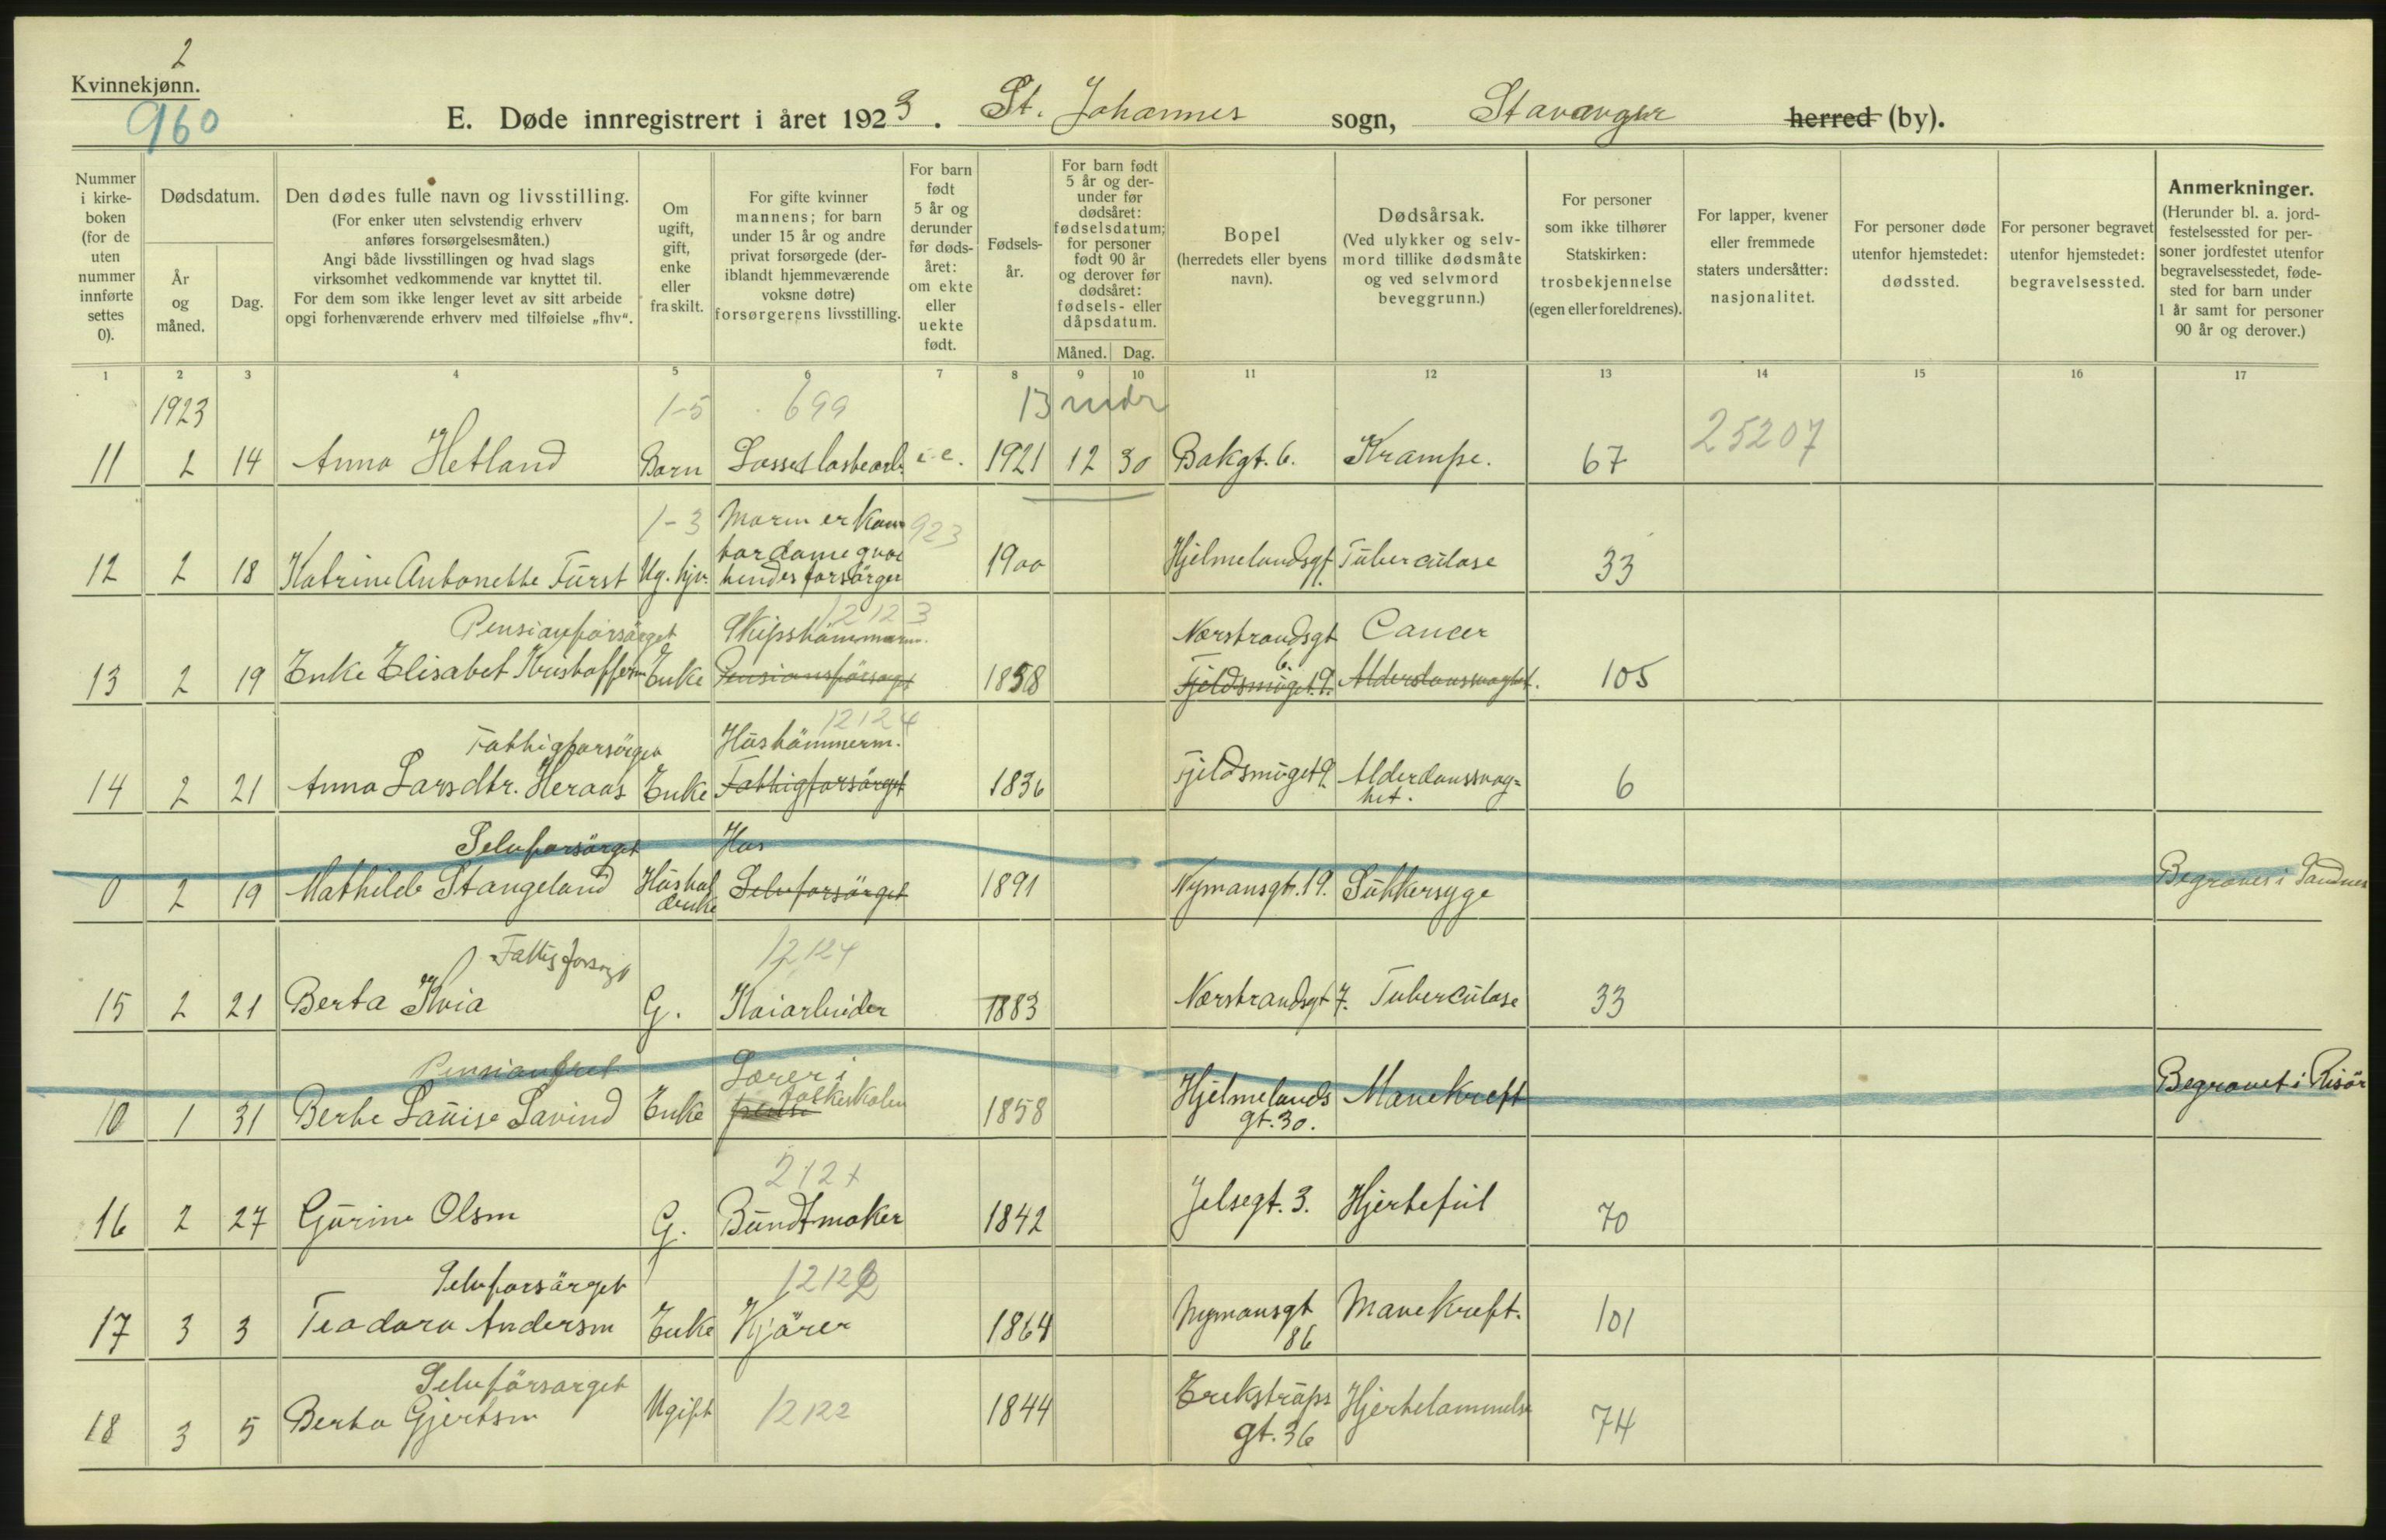 2
Kvinnekjønn.
960
E. Døde innregistrert i året 1923. St. Johannes sogn, Stavanger herred (by).
Nummer i kirke-boken (for de uten nummer innførte settes 0).
Dødsdatum.
År og måned.
Dag.
Den dødes fulle navn og livsstilling.
(For enker uten selvstendig erhverv anføres forsørgelsesmåten.)
Angi både livsstillingen og hvad slags virksomhet vedkommende var knyttet til.
For dem som ikke lenger levet av sitt arbeide opgi forhenværende erhverv med tilføielse „fhv“.
Om ugift, gift, enke eller fraskilt.
For gifte kvinner mannens; for barn under 15 år og andre privat forsørgede (der-iblandt hjemmeværende voksne døtre) forsørgerens livsstilling.
For barn født 5 år og derunder før døds-året: om ekte eller uekte født.
Fødsels-år.
For barn født 5 år og der-under før dødsåret: fødselsdatum; for personer født 90 år og derover før dødsåret: fødsels- eller dåpsdatum.
Måned. Dag.
Bopel (herredets eller byens navn).
Dødsårsak. (Ved ulykker og selv-mord tillike dødsmåte og ved selvmord beveggrunn.)
For personer som ikke tilhører Statskirken: trosbekjennelse (egen eller foreldrenes).
For lapper, kvener eller fremmede staters undersåtter: nasjonalitet.
For personer døde utenfor hjemstedet: dødssted.
For personer begravet utenfor hjemstedet: begravelsessted.
Anmerkninger.
(Herunder bl. a. jord-festelsessted for per-soner jordfestet utenfor begravelsesstedet, føde-sted for barn under 1 år samt for personer 90 år og derover.)
1 2 3 4 5 6 7 8 9 10 11 12 13 14 15 16 17
1923 1-5 699 13 mdr
11 2 14 Anna Hetland Barn i.e. 1921 12 30 Bakgt. 6. Krampe. 67 25207
1-3 Morm er Kon 923
tordame
12 2 18 Katrine Antonette Fürst Ug. hjv. hendes forsörger 1900 Hjelmelandsgt. Tuberculose 33
Pensionsforsörget Skipstömmerm. 12123 Nærstrandsgt Cancer
6
13 2 19 Enke Elisabet Kristoffersen Enke Pensionsforsörget 1858 Fjeldsmuget 9. Alderdomssvaghet. 105
Fattigforsörget Hustömmerm. 12124
14 2 21 Anna Larsdtr. Heraas Enke Fattigforsörget 1836 Fjeldsmuget 9. Alderdomssvag=
het. 6
Selvforsörget Hus
0 2 19 Mathilde Stangeland Selvforsörget 1891 Nymansgt. 19. Sukkersyge Begraves i Sandnes
Fattigforsørgt 12124
15 2 21 Berta Kvia G. Kaiarbeider 1883 Nærstrandsgt 7. Tuberculose 33
Lærer i
folkeskolen
10 1 31 Berte Lauise Lavind Enke 1858 Hjelmelands
gt. 30. Mavekreft Begravet i Risör
16 2 27 Gurine Olsen G. Bundtmaker 1842 Jelsegt. 3. Hjertefeil 70
Selvforsörget
17 3 3 Teodora Andersen Enke Kjörer 1864 Nymansgt
86 Mavekreft. 101
Selvforsörget
18 3 5 Berta Gjertsen Ugift 12122 1844 Erikstrups
gt. 36 Hjertelammelse 74